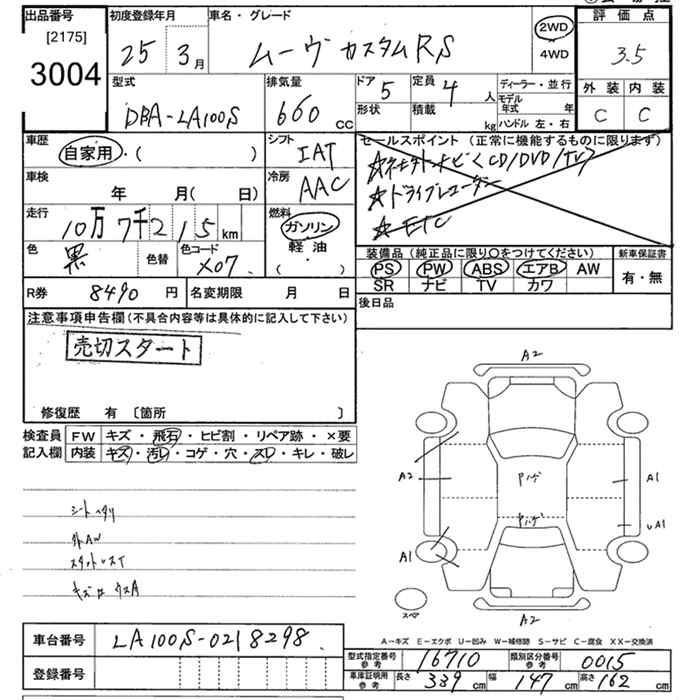 出品番号 [2175] 3004
初度登録年月 25年 3月
車名・グレード ムーヴカスタムRS
2WD 4WD
評価点 3.5
外装 内装
C C
型式 DBA-LA100S
排気量 660 CC
ドア 5 形状
定員 4人 積載 kg
ディーラー・並行
モデル年式 年
ハンドル 左・右
車歴 自家用・( )
シフト IAT
車検 年 月( 日)
冷房 AAC
走行 10万7千215km
燃料 ガソリン 軽油・( )
色 黒 色替 色コード X07
セールスポイント (正常に機能するものに限ります)
☆ドライブレコーダー
☆ETC
装備品(純正品に限り○をつけてください)
PS PW ABS エアB AW
SR ナビ TV カワ
新車保証書 有・無
R券 8490円 名変期限 月 日
後日品
注意事項申告欄(不具合内容等は具体的に記入して下さい)
売切スタート
修復歴 有 〔箇所 〕
検査員記入欄 FW キズ・飛石・ヒビ割・リペア跡・×要
内装 キズ・汚レ・コゲ・穴・スレ・キレ・破レ
シートヘタリ
A2
A2 A1
A1
A1 UA1
スペア
A2
A-キズ E-エクボ U-凹み W-補修跡 S-サビ C-腐食 XX-交換済
車台番号 LA100S-0218298
登録番号
型式指定番号 参考 16710 類別区分番号 参考 0015
車庫証明用 参考 長さ 339cm 幅 147cm 高さ 162cm